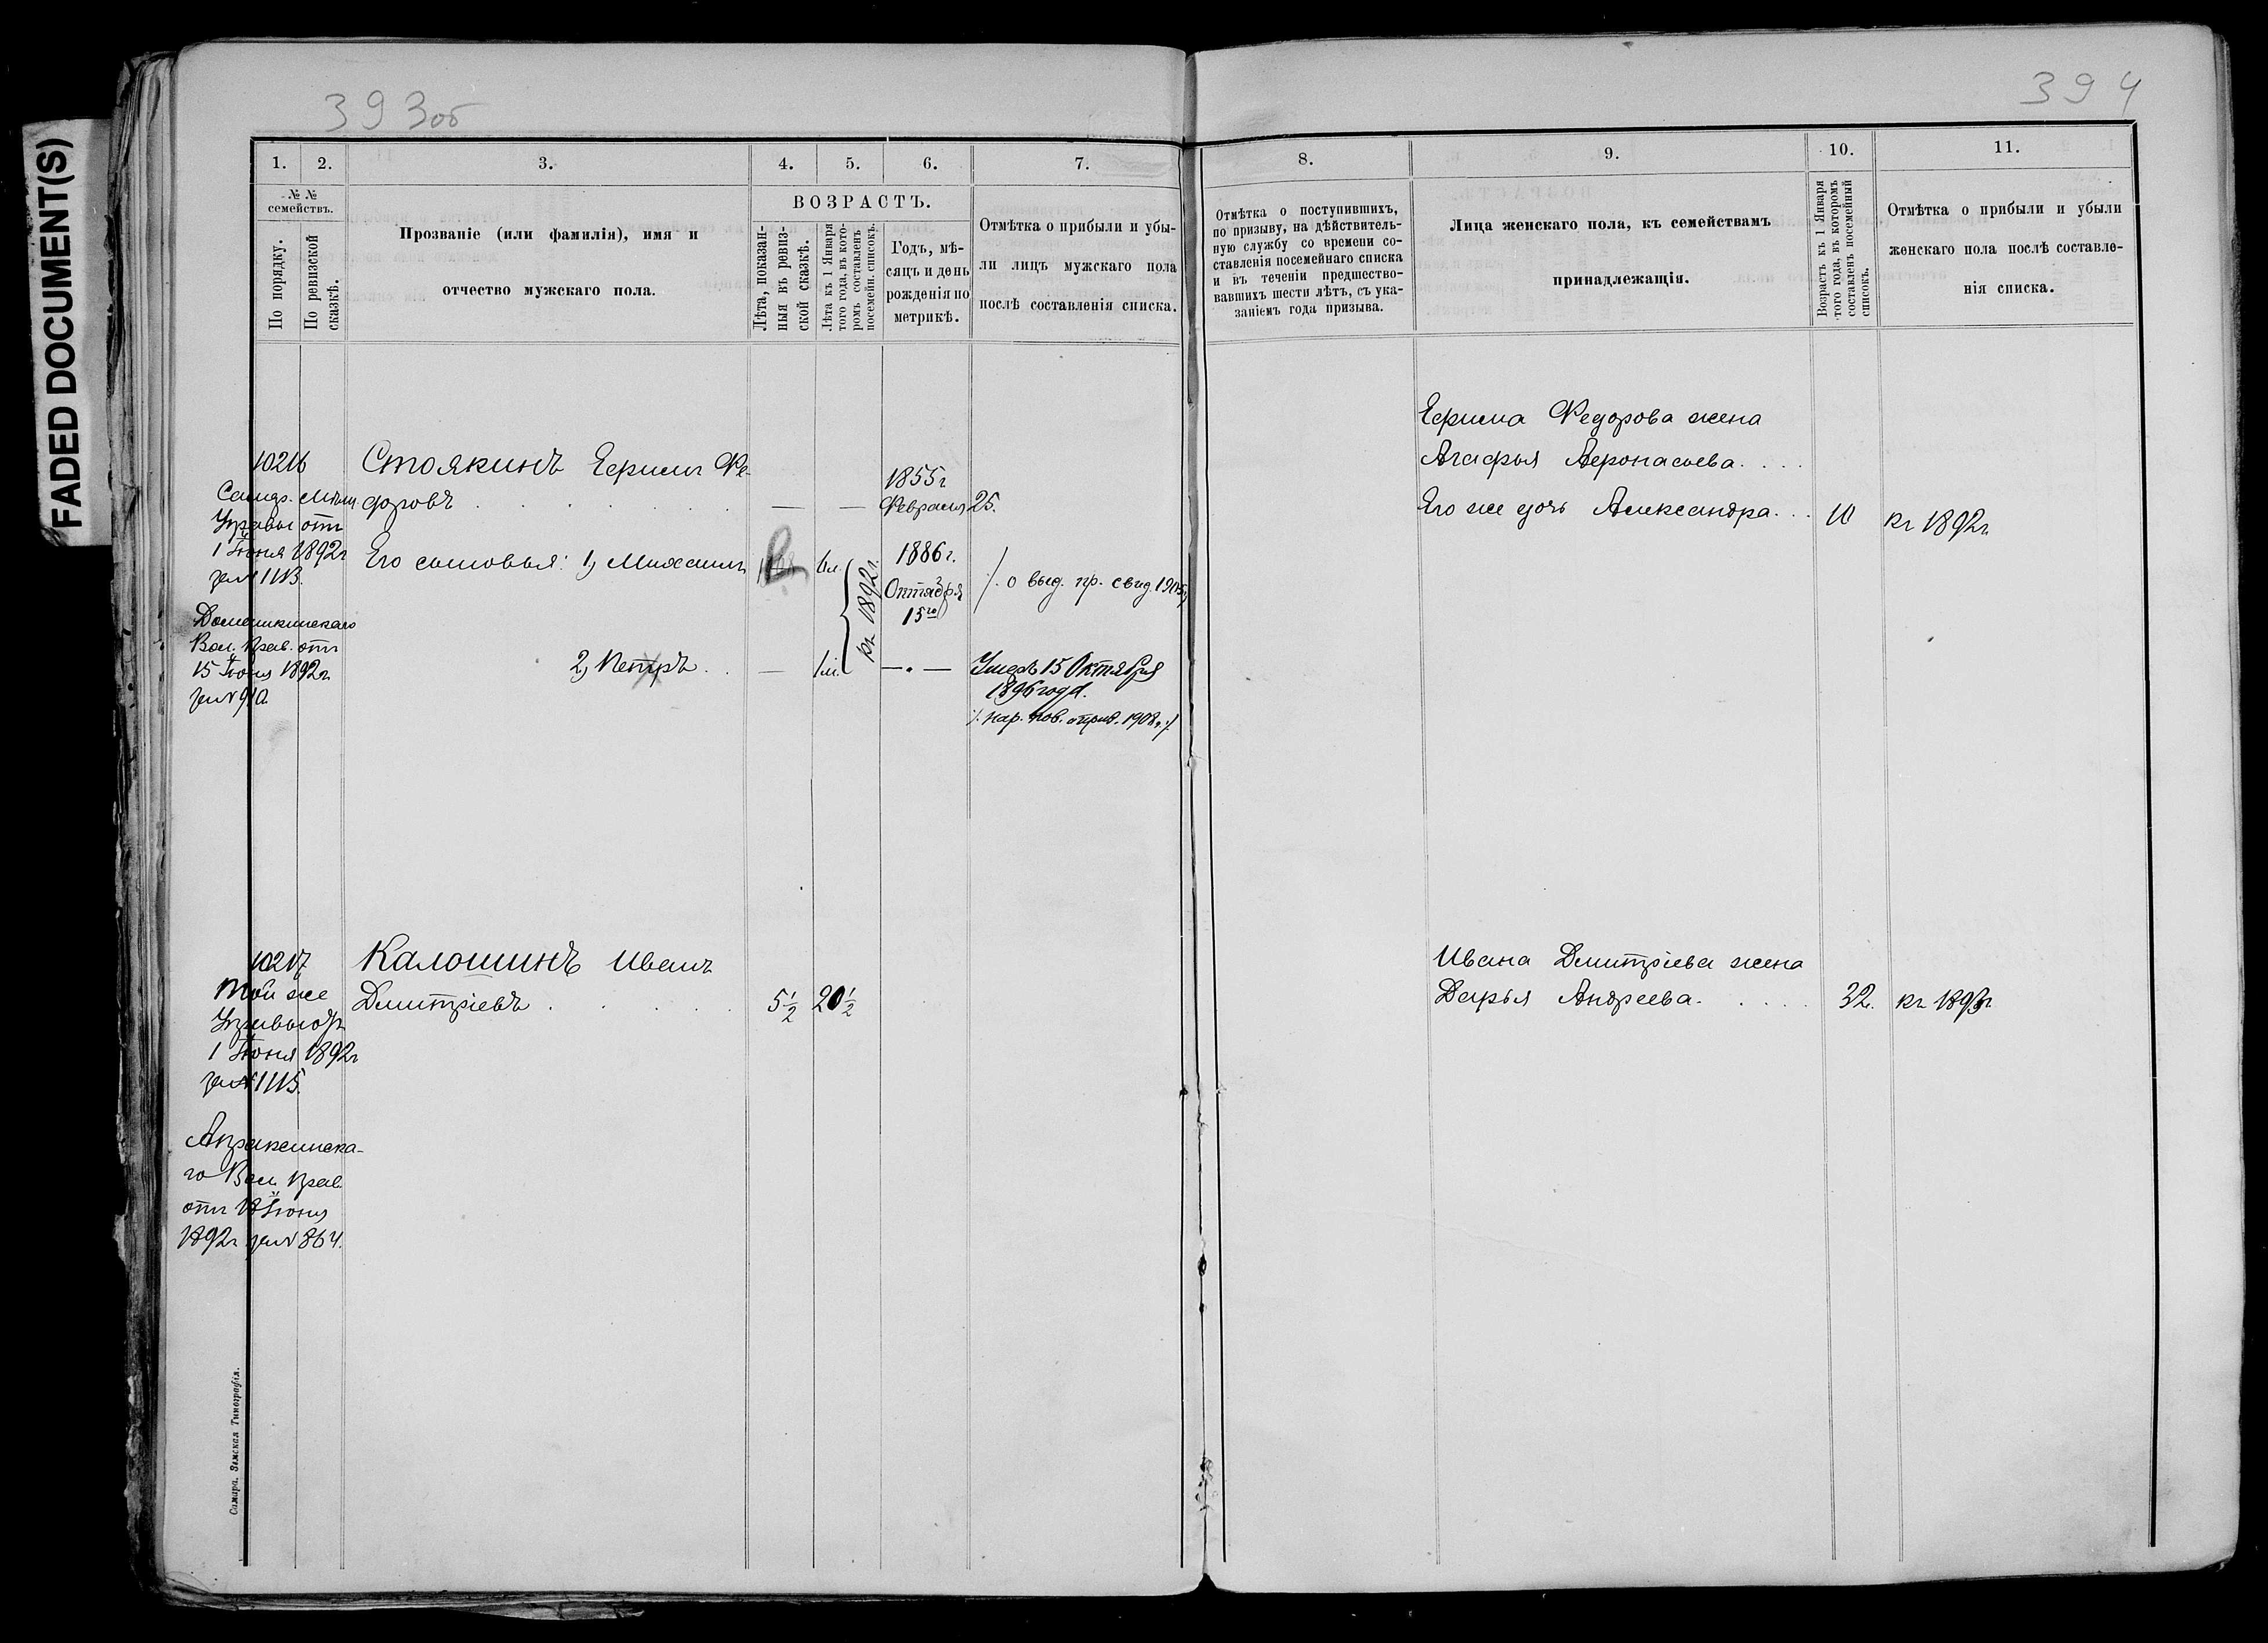 FADED DOCUMENT(S)
393об
1.
2.
3.
4.
5.
6.
7.
№ №
семействъ.
По порядку.
По ревизской
сказкѣ.
Прозваніе (или фамилія), имя и
отчество мужскаго пола.
ВОЗРАСТЪ.
Лѣта, показан-
ныя въ ревиз-
ской сказкѣ.
Лѣта къ 1 Января
того года, въ кото-
ромъ составленъ
посемейн. списокъ.
Годъ, мѣ-
сяцъ и день
рожденія по
метрикѣ.
Отмѣтка о прибыли и убы-
ли лицъ мужскаго пола
послѣ составленія списка.
10216
Самар. Мѣщ.
Управы отъ
1 Іюня 1892г
за №
Вол. Прав. отъ
15 Іюня 1892г.
за № 910.
Стоякинъ Ефимъ Фе-
доровъ
— —
1855г
Февраля 25.
Его сыновья: 1, Михаилъ
6л.
къ 1892г.
1886г.
15го
о выд. пр. свид.
2, Петръ
—
1л.
—•—
Умеръ 15 Октября
1896 года.
1908г.
10217
Той же
Управы отъ
1 Іюня 1892г
за № 1115.
Апраксинска-
го Вол. Прав.
отъ 18 Іюня
1892г за № 864.
Калошинъ Иванъ
Дмитріевъ
5½
20½
Самара. Земская Типографія.
394
8.
9.
10.
11.
Отмѣтка о поступившихъ,
по призыву, на дѣйствитель-
ную службу со времени со-
ставленія посемейнаго списка
и въ теченіи предшество-
вавшихъ шести лѣтъ, съ ука-
заніемъ года призыва.
Лица женскаго пола, къ семействамъ
принадлежащія.
Возрастъ къ 1 Января
того года, въ которомъ
составленъ посемейный
списокъ.
Отмѣтка о прибыли и убыли
женскаго пола послѣ составле-
нія списка.
Ефима Федорова жена
Агафья Афонасьева
Его же дочь Александра
10
къ 1892г.
Ивана Дмитріева жена
Дарья Андреева
32.
къ